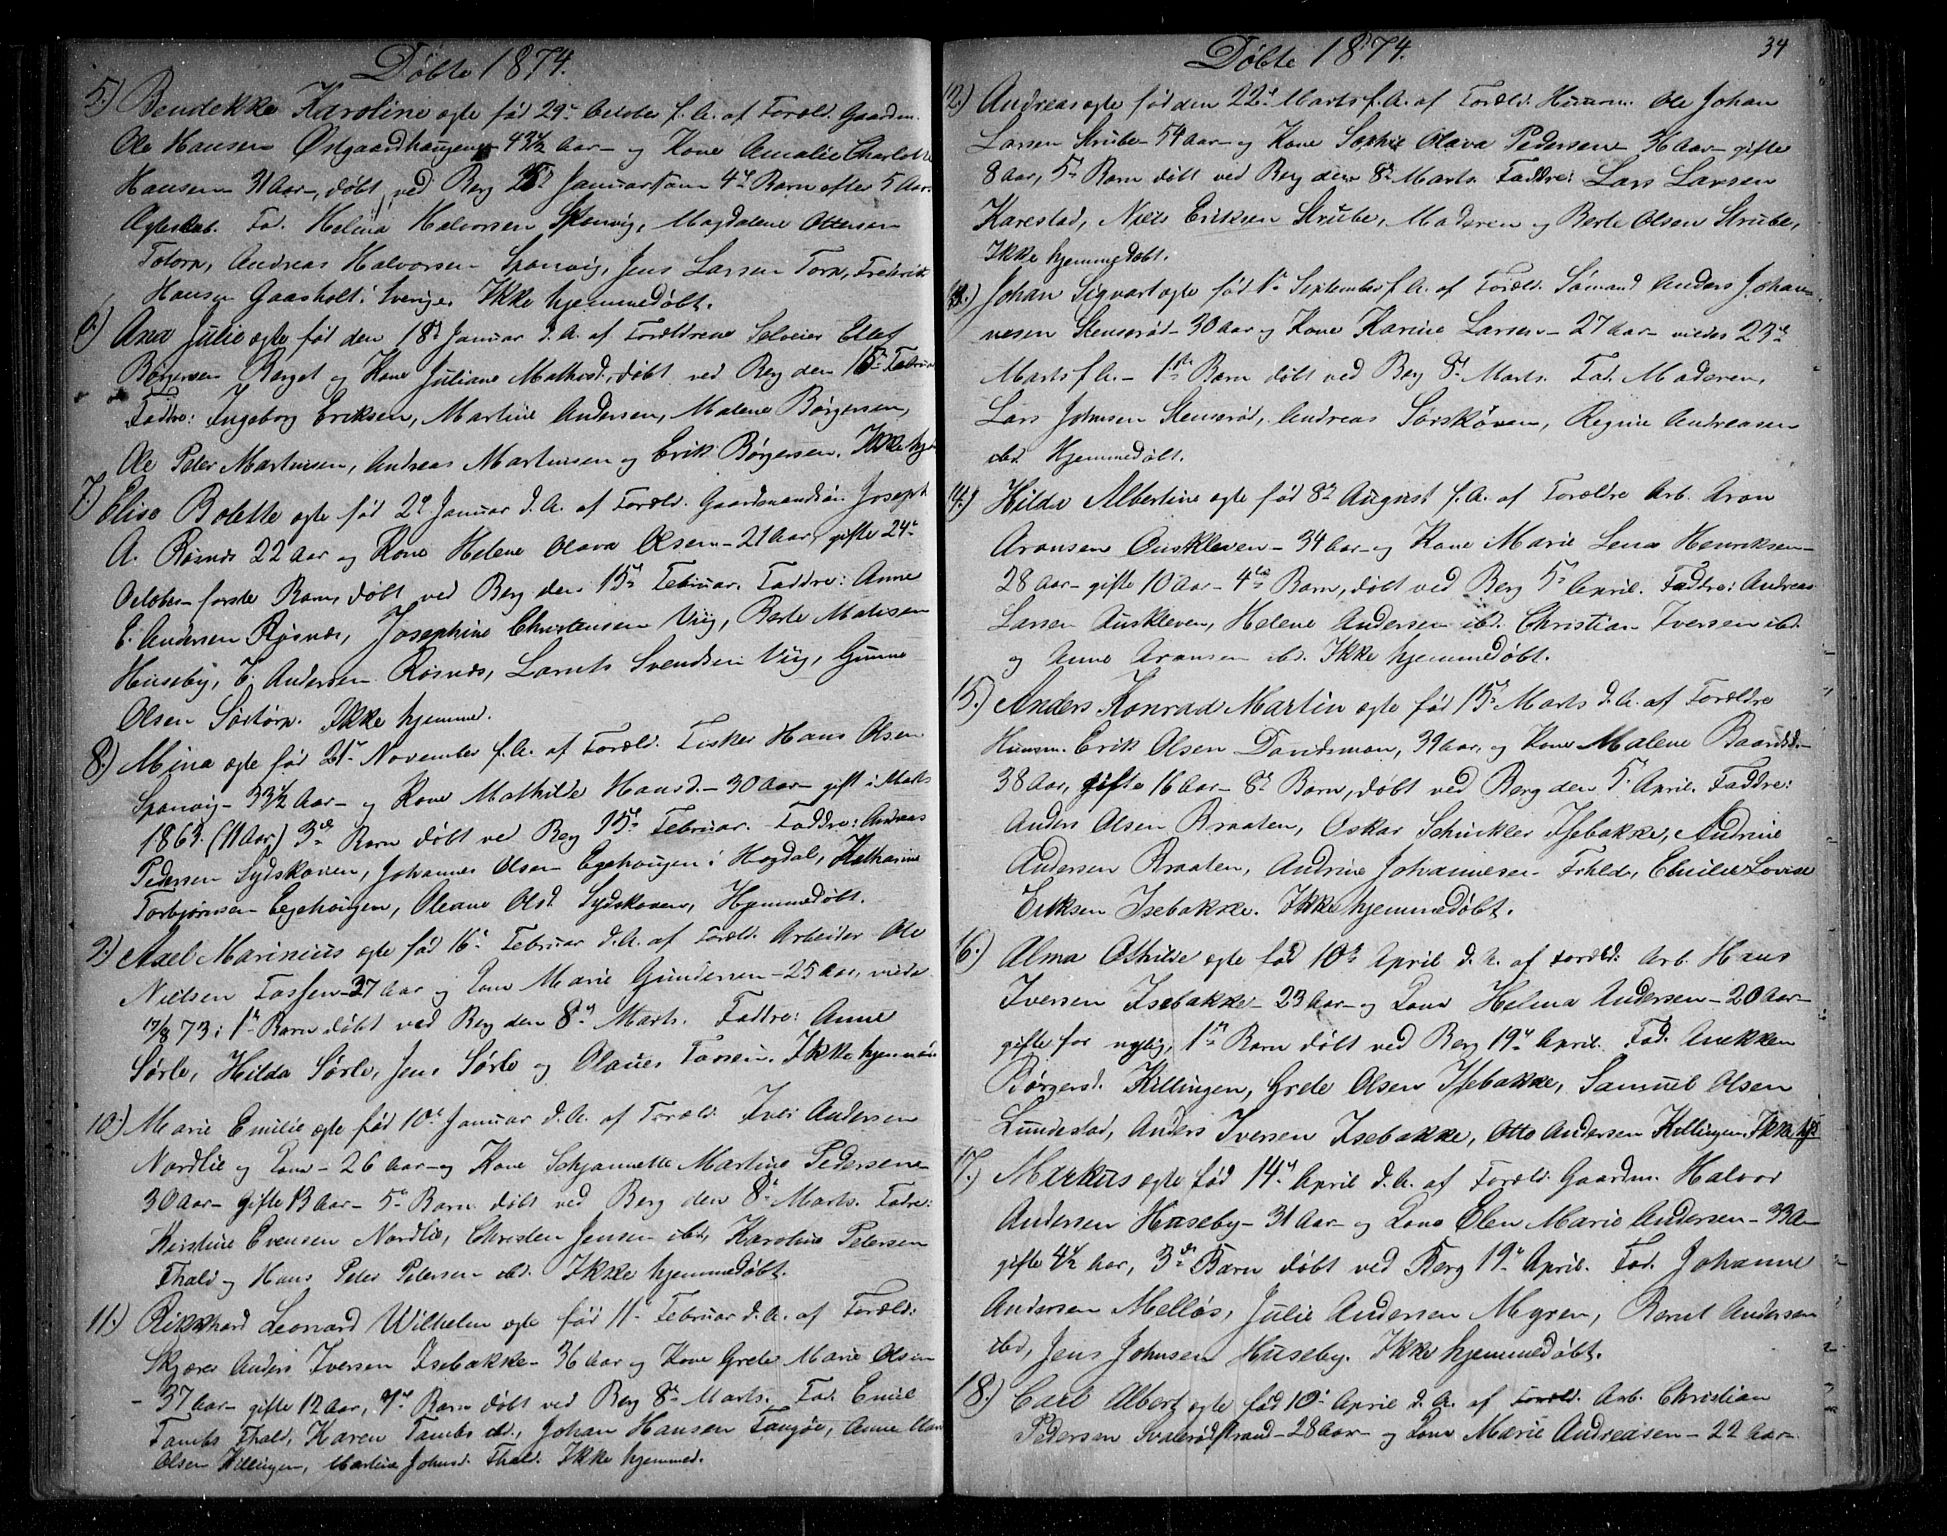 Döbte 1874.
5.) Bendekke Karoline egte fød 29de October f. A. af Foræld. Gaardm.
Ole Hansen Østgaardhaugene 43½ Aar og Kone Amalie Charlotte
Hansen 31 Aar, døbt ved Berg 25de Januar som 4de Barn efter 5 Aars
Egteskab. Fad. Helena Halvorsen Sponvig, Magdalene Ottersen
Totorp, Andreas Halvorsen Sponvig, Jens Larsen Torp, Frederik
Hansen Gaasholt i Sverige. Ikke hjemmedøbt.
6.) Ana Julie egte fød den 18de Januar d. A. af Forældrene Selveier Ellef
Børgersen Berget og Kone Juliane Mathisd., døbt ved Berg den 15de Februar
Faddre: Ingeborg Eriksen, Martine Andersen, Malene Børgersen,
Ole Peter Martinsen, Andreas Martinsen og Erik Børgersen. Ikke hje
7.) Elise Bolette egte fød 2de Januar d. A. af Foræld. Gaardmandsøn Joseph
A. Røsnæs 22 Aar og Kone Helene Olava Olsen 21 Aar, gifte 24de
October første Barn, døbt ved Berg den 15de Februar. Faddre: Anne
E. Andersen Røsnæs, Josephine Christensen Viig, Berte Matisen
Huseby, E. Andersen Røsnæs, Lornts Svendsen Viig, Gunne
Olsen Sørtorp. Ikke hjemmed.
8.) Mina egte fød 21de November f. A. af Foræld. Fisker Hans Olsen
Sponvig 33½ Aar og Kone Mathilde Hansd. 30 Aar gift i Marts
1863. (11 Aar) 3die Barn døbt ved Berg 15de Februar. Faddre: Andreas
Pedersen Sydskoven, Johannes Olsen Egehougen i Hogdal, Katharine
Torbjørnsen Egehougen, Oleane Olsd. Sydskoven, Hjemmedøbt.
9.) Axel Marinius egte fød 16de Februar d. A. af Foræld. Arbeider Ole
Nielsen Tossen 27 Aar og Kone Marie Gundersen 25 Aar, viede
17/8 73; 1te Barn døbt ved Berg den 8de Marts. Faddre: Anne
Sørle, Hilda Sørle, Jens Sørle og Olaues Tossen. Ikke hjemmed
10.) Marie Emilie egte fød 10de Januar d. A. af Foræld. Iver Andersen
Nordlie og Kone 26 Aar og Kone Schjannette Martine Pedersen
30 Aar gifte 13 Aar 5te Barn døbt ved Berg den 8de Marts. Fadre:
Kristine Evensen Nordlie, Christen Jensen ibd, Karoline Petersen
Thald og Hans Peter Petersen ibd. Ikke hjemmedøbt.
11.) Rikkhard Leonard Wilhelm egte fød 11te Februar d. A. af Foræld:
Skjærer Anders Iversen Isebakke 36 Aar og Kone Grete Marie Olsen
37 Aar gifte 12 Aar, 7de Barn døbt ved Berg 8de Marts. Fad. Emil
Tambs Thald, Karen Tambs ibd., Johan Hansen Tangøe, Anne Mari
Olsen Killingen, Martine Johnsd. Thald. Ikke hjemmed.
Döbte 1874.
34
12.) Andreas egte fød den 22de Marts f. A. af Foræld. Husm. Ole Johan
Larsen Strube 54 Aar og Kone Sophie Olava Pedersen 36 Aar gifte
8 Aar, 5te Barn døbt ved Berg den 8de Marts. Faddre: Lars Larsen
Karestad, Niels Eriksen Strube, Moderen og Berte Olsen Strube,
Ikke hjemmedøbt.
13.) Johan Sigvart egte fød 1te September f. A. af Foræld. Sømand Anders Johan-
nesen Stenserød 30 Aar og Kone Karine Larsen 27 Aar viedes 23de
Marts f. A. 1ste Barn døbt ved Berg 8de Marts. Fad. Moderen,
Lars Johnsen Stenserød, Andreas Sørskoven, Regine Andreasen
ibd. Hjemmedøbt.
14.) Hilda Albertine egte fød 8de August f. A. af Forældre Arb. Aron
Aronsen Ouskleven 34 Aar og Kone Marie Lena Henriksen
28 Aar gifte 10 Aar 4de Barn, døbt ved Berg 5te April. Faddre: Andreas
Larsen Auskleven, Helene Andersen ibd. Christian Iversen ibd.
og Anne Aronsen ibd. Ikke hjemmedøbt.
15.) Anders Konrad Martin egte fød 15de Marts d. A. af Forældre
Husm. Erik Olsen Davidsmon, 39 Aar, og Kone Malene Baardsd.
38 Aar, gifte 16 Aar 8de Barn, døbt ved Berg den 5te April. Faddre:
Anders Olsen Braaten, Oskar Schinkler Isebakke, Andrine
Andersen Braaten, Andrine Johannesen Thald, Emilie Lovise
Eriksen Isebakke. Ikke hjemmedøbt.
16.) Alma Othilde egte fød 10de April d. A. af Foræld: Arb. Hans
Iversen Isebakke 23 Aar og Kone Helena Andersen 20 Aar
gifte for nylig, 1te Barn døbt ved Berg 19de April. Fad. Anekken
Børgersd. Killingen, Grete Olsen Isebakke, Samuel Olsen
Lundestad, Anders Iversen Isebakke, Otto Andersen Killingen. Ikke hjd
17.) Markus egte fød 14de April d. A. af Foræld. Gaardm. Halvor
Andersen Huseby 31 Aar og Kone Elen Marie Andersen 33 A
gifte 4½ Aar, 3die Barn døbt ved Berg 19de April. Fad. Johanne
Andersen Melløs, Julie Andersen Myren, Bernt Andersen
ibd, Jens Johnsen Huseby. Ikke hjemmedøbt.
18.) Carl Albert egte fød 10de April d. A. af Foræld. Arb. Christian
Pedersen Svalerødstrand 28 Aar og Kone Marie Andreasen 22 Aar